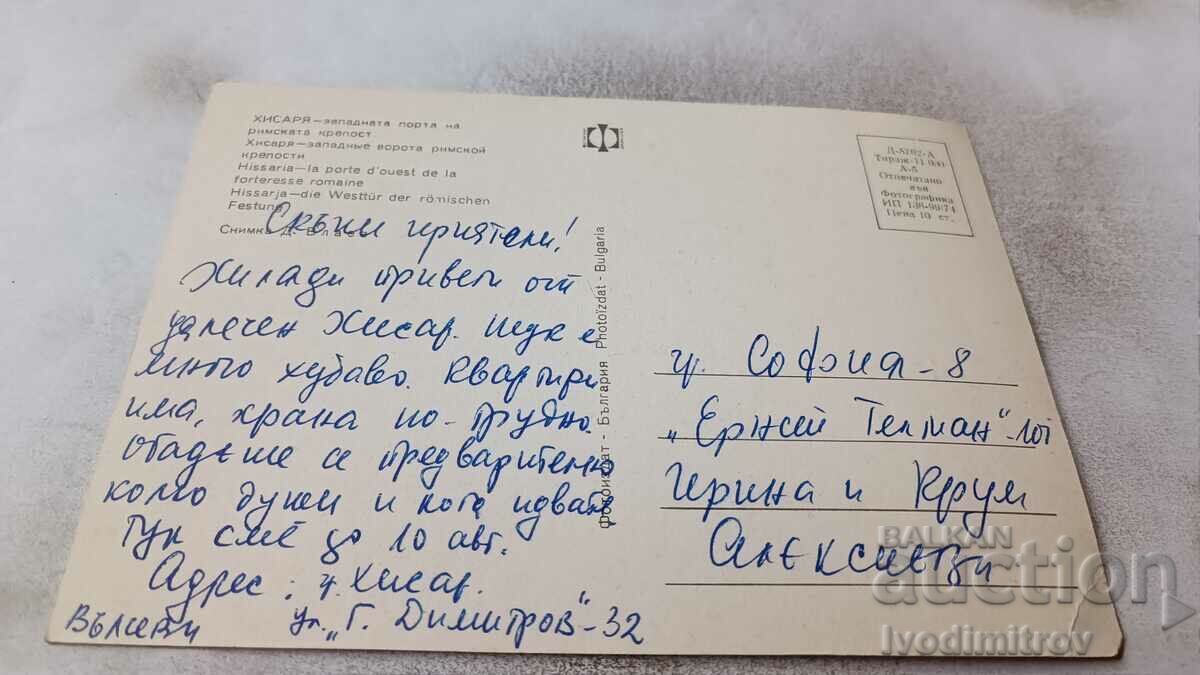 ХИСАРЯ—западната порта на
римската крепост
Хисаря—западные ворота римской
крепости
Hissaria—la porte d'ouest de la
forteresse romaine
Hissarja—die Westtür der römischen
Festung
Снимка Д. Власев
Скъпи приятели!
Хиляди привети от
далечен Хисар. Тук е
много хубаво. Квартири
има, храна по-трудно.
Обадете се предварително
колко души и кога идвате
Тук сме до 10 авг.
Адрес: гр. Хисар.
ул. „Г. Димитров"-32
Вълчеви
Фотоиздат - България Photoïzdat - Bulgaria
Д-5102-А
Тираж 11 000
А-5
Отпечатано
във
Фотографика
ИП 138-99/74
Цена 10 ст.
гр. София-8
„Ернст Телман"-101
Ирина и Крум
Алексиеви
BALKAN
auction
Ivodimitrov